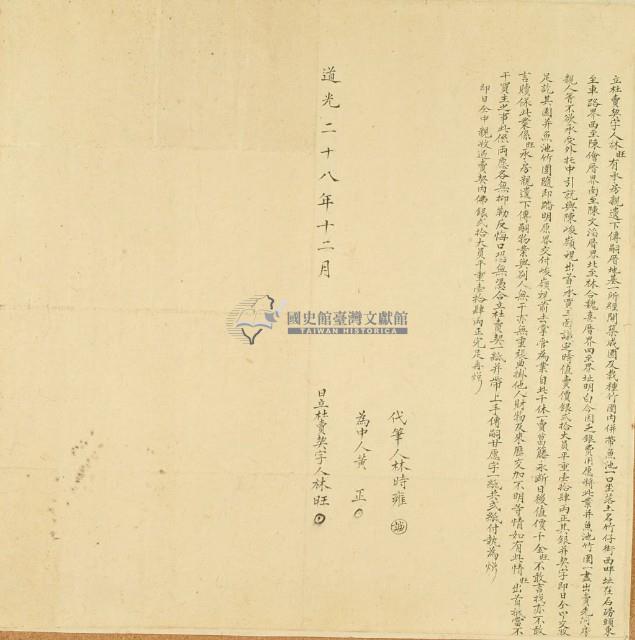 立杜賣契字人林旺有承房親遺下傳嗣厝地基一所經開築成園及栽種竹圍內併帶魚池一口坐落土名竹仔街西畔址在石磅頭東
至車路界西至陳儈厝界南至陳文滔厝界北至林合魏喜厝界四至界址明白今因乏銀費用愿將此業并魚池竹圍一盡出賣先問房
親人等不欲承受外托中引就與陳峻嶺觀出首承買三面議定時值賣價銀貳拾大員平重壹拾肆兩正其銀并契字即日仝中交收
足訖其園并魚池竹圍隨即踏明原界交付峻嶺觀前去掌管為業自此千休一賣葛藤永斷日後值價千金旺不敢言找亦不敢
言贖保此業係旺承房親遺下傳嗣物業與別人無干亦無重張典掛他人財物及來歷交加不明等情如有此情旺出首抵當不
干買主之事此係兩愿各無抑勒反悔口恐無憑合立杜賣契一紙并帶上手傳嗣甘愿字一紙共貳紙付執為炤
即日仝中親收過賣契內佛銀貳拾大員平重壹拾肆兩正完足再炤
代筆人林時雍
為中人黃 正
日立杜賣契字人林旺
道光二十八年十二月
國史館臺灣文獻館
TAIWAN HISTORICA